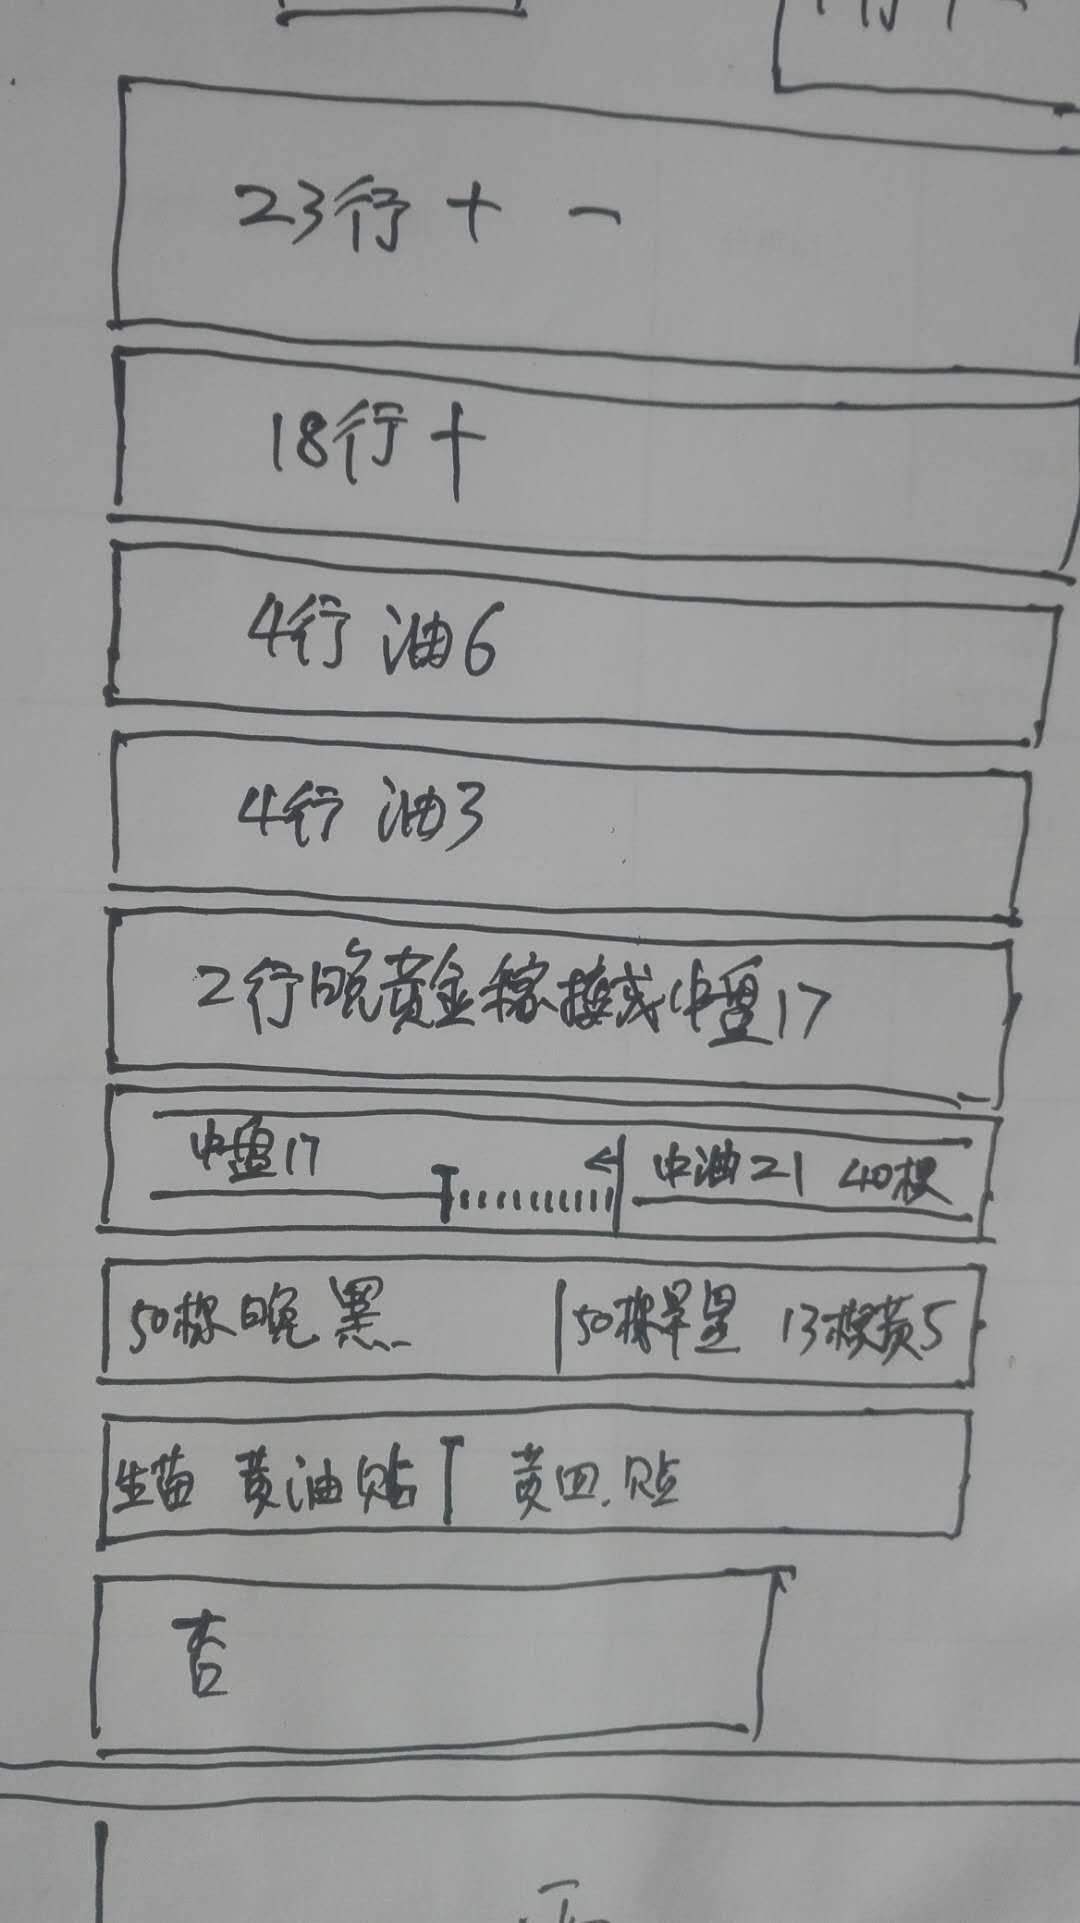 23行 十 一
18行 十
4行 油6
4行 油3
2行晚黄金稼接成中蟠17
中蟠17 中油21 40棵
50棵晚黑 50棵早 13棵黄5
生苗 黄油贴 黄四.贴
杏